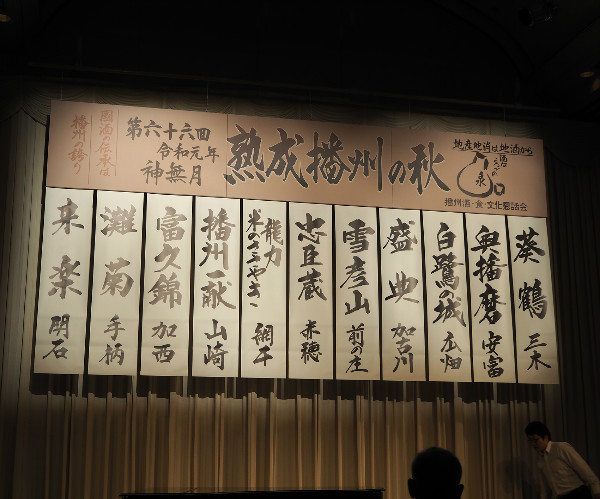 國酒の伝承は
播州の誇り
第六十六回
令和元年
神無月
熟成播州の秋
地産地消は地酒から
泉
播州酒・食・文化懇話会
来楽 明石
灘菊 手柄
富久錦 加西
播州一献 山崎
龍力
米のささやき 網干
忠臣蔵 赤穂
雪彦山 前の庄
盛典 加古川
白鷺の城 広畑
奥播磨 安富
葵鶴 三木